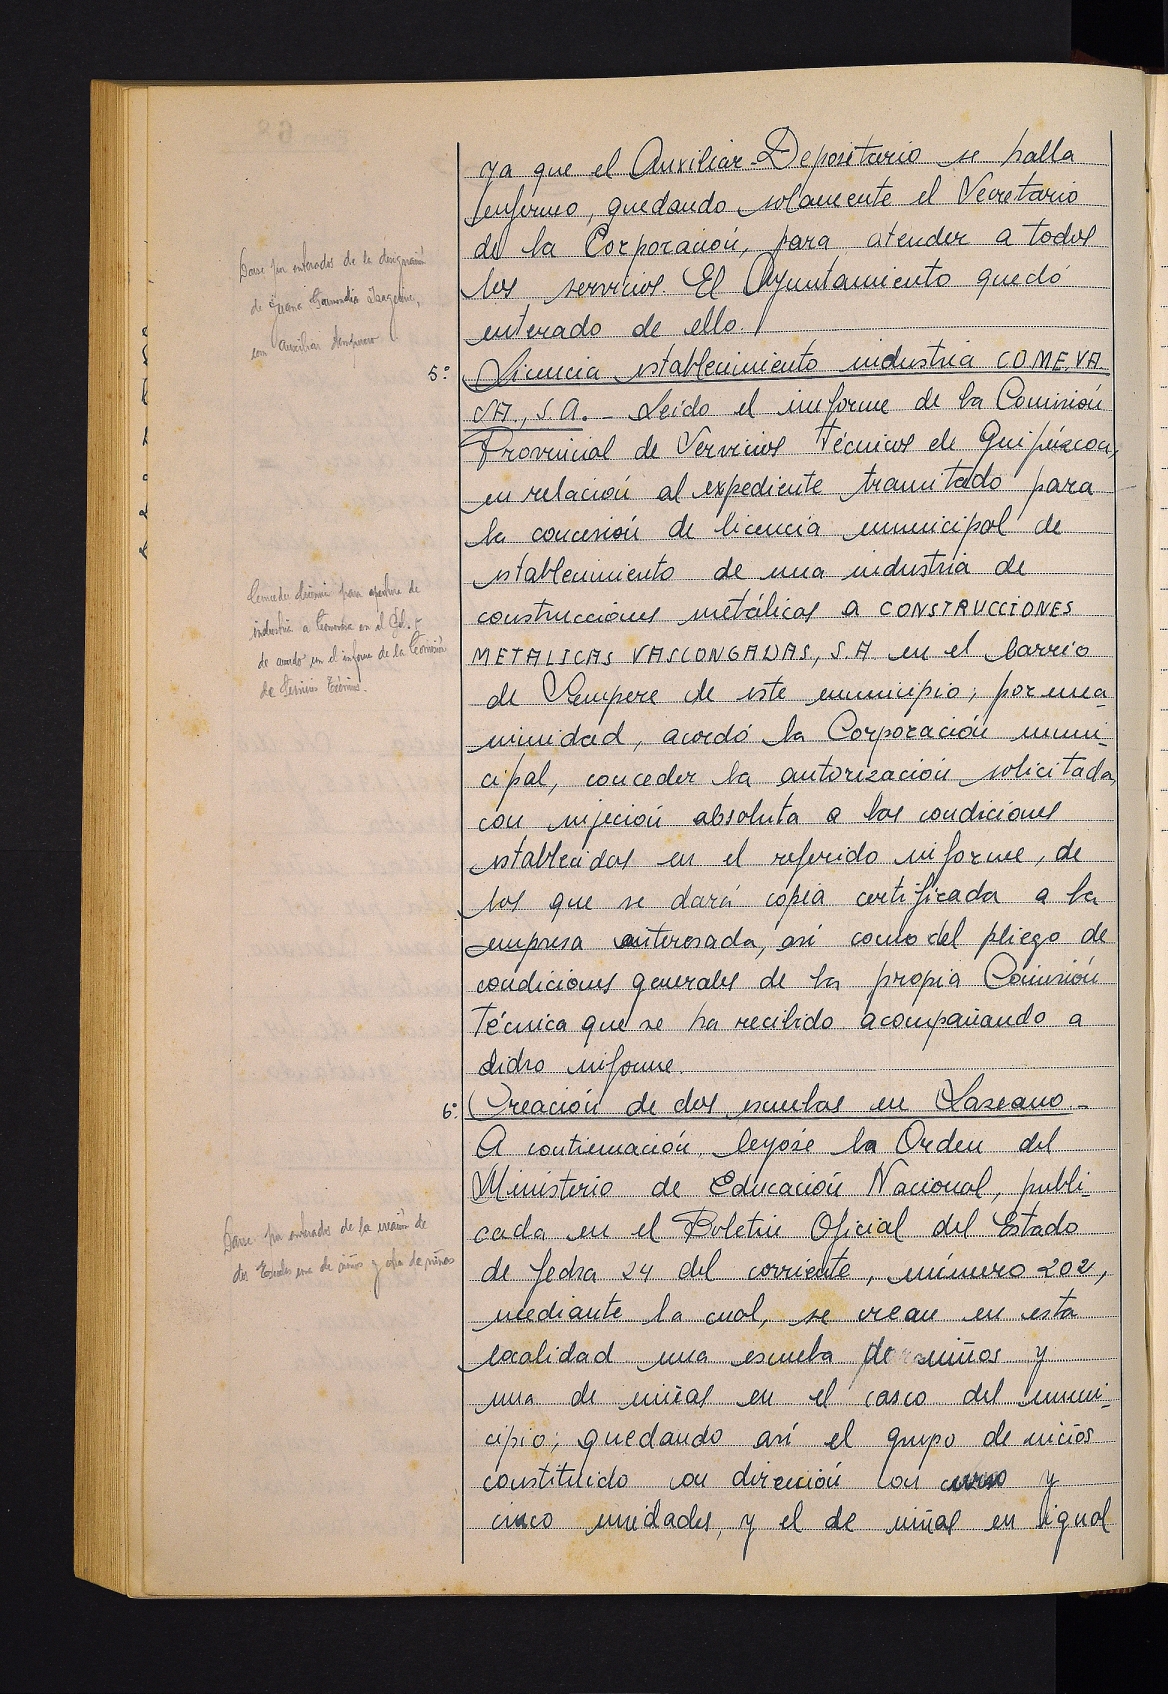 ya que el Auxiliar-Depositario se halla
enfermo, quedando solamente el Secretario
de la Corporación, para atender a todos
los servicios. El Ayuntamiento quedó
enterado de ello.
Darse por enterados de la designación
de Juana
com Auxiliar temporero
5º Licencia establecimiento industria COMEVA
SA, S.A. - Leído el informe de la Comisión
Provincial de Servicios Técnicos de Guipúzcoa,
en relación al expediente tramitado para
la concesión de licencia municipal de
establecimiento de una industria de
construcciones metálicas a CONSTRUCCIONES
METALICAS VASCONGADAS, S.A en el barrio
de Sempere de este municipio; por una-
nimidad, acordó la Corporación muni-
cipal, conceder la autorización solicitada,
con sujeción absoluta a las condiciones
establecidas en el referido informe, de
los que se dará copia certificada a la
empresa interesada, así como del pliego de
condiciones generales de la propia Comisión
Técnica que se ha recibido acompañando a
dicho informe.
Conceder licencia para apertura de
industria a Comevasa en el
de acuerdo en el informe de la Comisión
de Servicios Técnicos.
6º: Creación de dos escuelas en Lazcano.-
A continuación, leyose la Orden del
Ministerio de Educación Nacional, publi-
cada en el Boletín Oficial del Estado
de fecha 24 del corriente, número 202,
mediante la cual, se crean en esta
localidad una escuela de niños y
una de niñas en el casco del muni-
cipio; quedando así el grupo de niños
constituido con dirección con curso y
cinco unidades, y el de niñas en igual
Darse por enterados de la creación de
dos Escuelas una de niños y otra de niñas